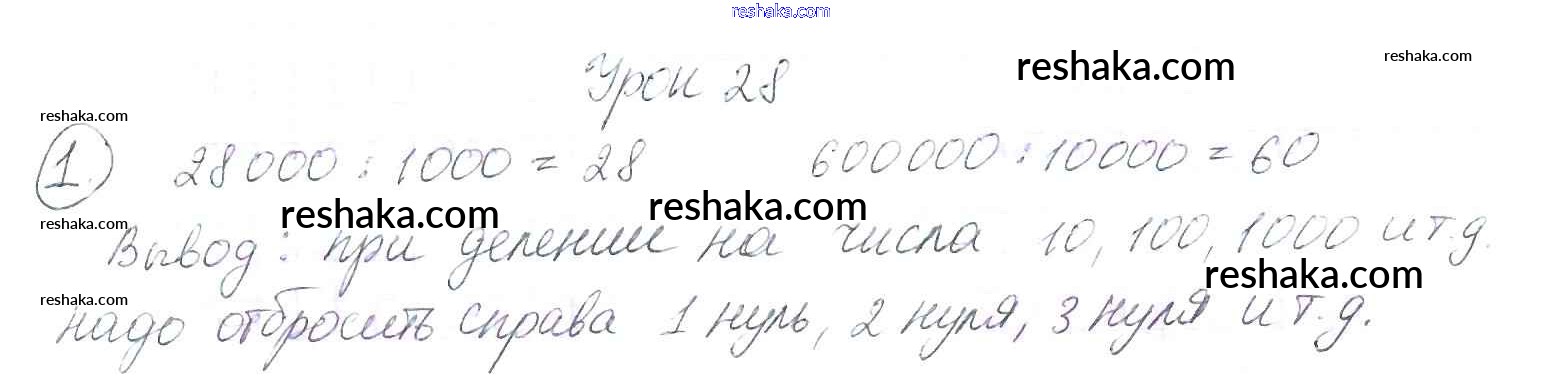 reshaka.com
Урок 28 reshaka.com reshaka.com
reshaka.com
1. 28000 : 1000 = 28 600000 : 10000 = 60
reshaka.com reshaka.com
reshaka.com
Вывод: при делении на числа 10, 100, 1000 и т.д.
reshaka.com
reshaka.com
надо отбросить справа 1 нуль, 2 нуля, 3 нуля и т.д.